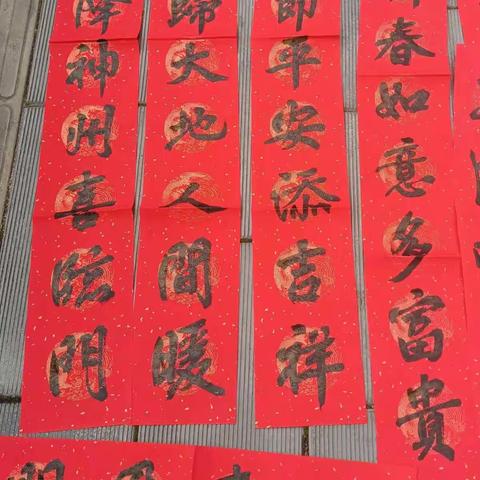 春如意多富貴
節平安添吉祥
歸大地人間暖
降神州喜臨門